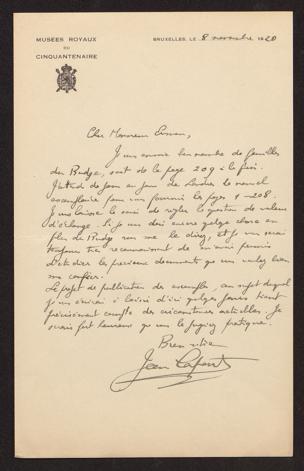 MUSÉES ROYAUX
DU
CINQUANTENAIRE
BRUXELLES, LE 8 novembre 1920
Cher Monsieur
Je vous envoie de feuilles
du Budge, soit de la page 209 à la fin.
J'attends de jour en jour de Londres le nouvel
exemplaire pour vous fournir les pages 1-208.
Je vous laisse le soin de régler la question de valeur
d'échange. Si je vous dois encore quelque chose en
plus de Budge vous me le direz, et je vous serai
toujours très reconnaissant de m'avoir permis
d'étudier les précieux documents que vous voulez bien
me confier.
Le projet de publication au sujet duquel
je vous écrirai à loisir d'ici quelques jours tient
précisément compte des circonstances actuelles. Je
serais fort heureux que vous le jugiez pratique.
Bien vôtre
Jean Capart